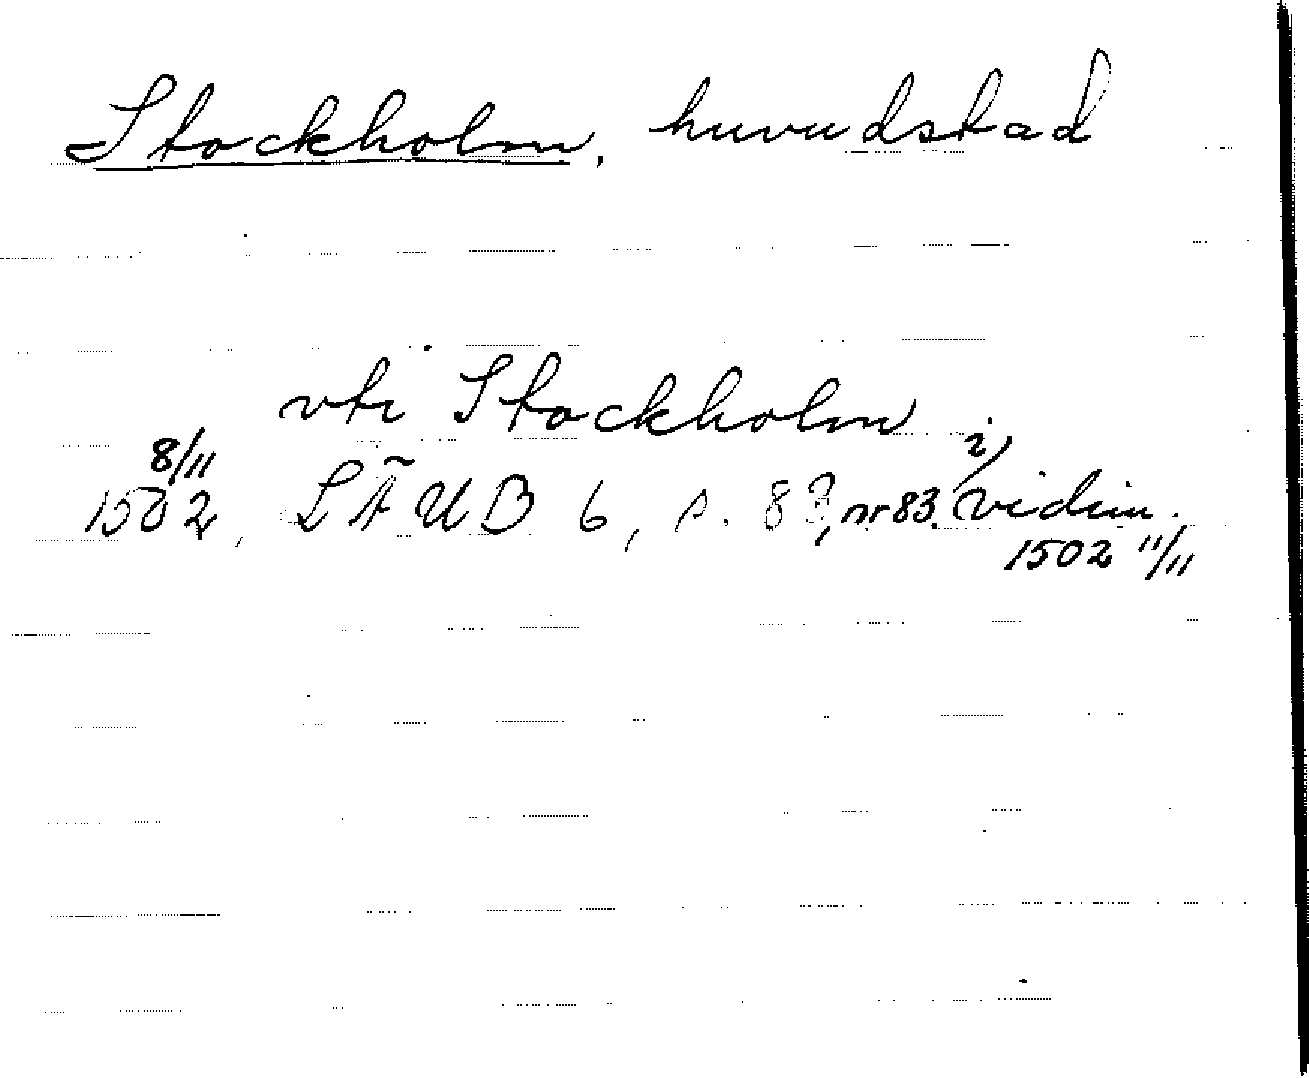 Stockholm, huvudstad
vti Stockholm
1502 8/11, LÄUB 6, s. 83, nr 83. i vidim.
1502 11/11